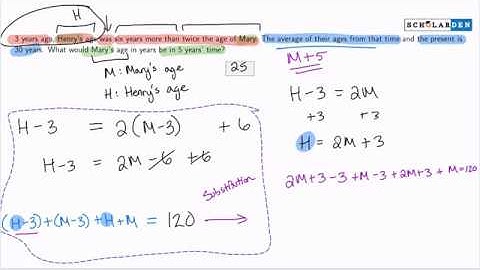 H
SCHOLARDEN
3 years ago, Henry's age was six years more than twice the age of Mary. The average of their ages from that time and the present is
30 years. What would Mary's age in years be in 5 years' time?
M: Mary's age
25
H: Henry's age
M+5
H-3 = 2(M-3) +6
H-3 = 2M-6 +6
(H-3)+(M-3)+H+M = 120
Substitution
H-3 = 2M
+3 +3
H = 2M+3
2M+3-3+M-3+2M+3+M=120